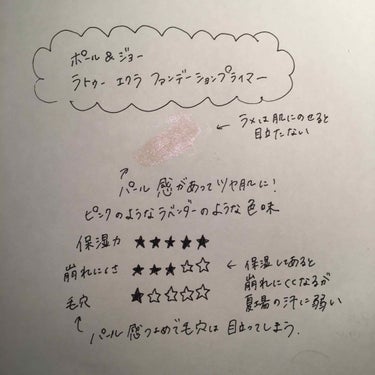 ポール&ジョー
ラトゥー エクラ ファンデーションプライマー
← ラメは肌にのせると
目立たない
↑
パール感があってツヤ肌に!
ピンクのようなラベンダーのような色味
保湿力 ★★★★★
崩れにくさ ★★★☆☆
← 保湿してあると
崩れにくくなるが
夏場の汗に弱い
毛穴 ★☆☆☆☆
↑
パール感つよめで毛穴は目立ってしまう.